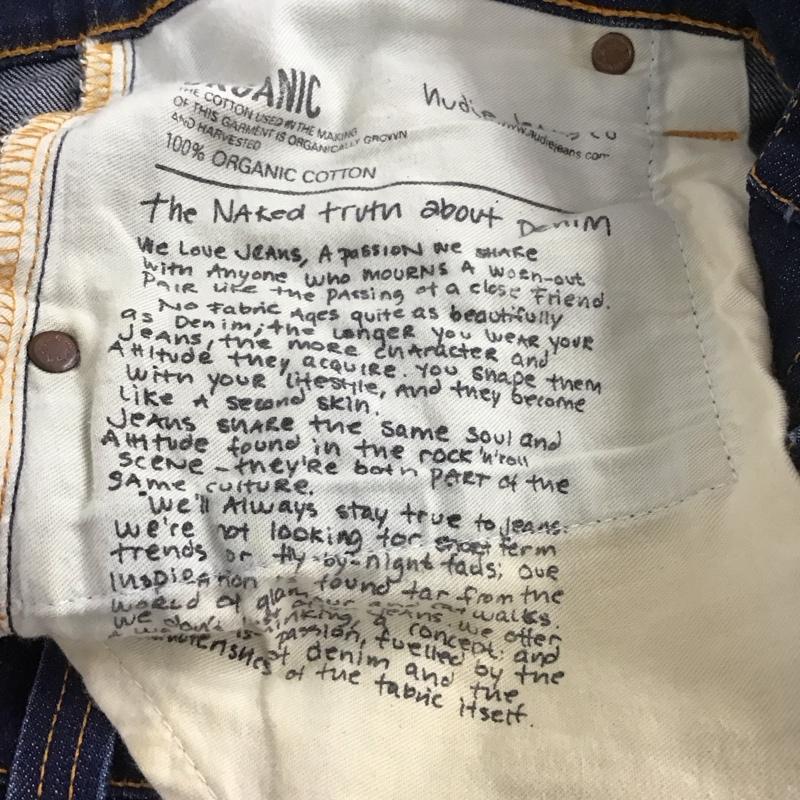 ORGANIC
THE COTTON USED IN THE MAKING
OF THIS GARMENT IS ORGANICALLY GROWN
AND HARVESTED
100% ORGANIC COTTON
Nudie Jeans co
www.nudiejeans.com
the NAKed truth about DeniM
We Love JEANS, A passion we sHARe
with Anyone who MOURNS A worn-out
PAiR Like the PAssing of a close Friend.
No Fabric Ages quite as beautifully
as Denim; the Longer you weAR youR
Jeans, the more chARActer and
Attitude they acquire. You shape them
with your lifestyle, And they become
Like A second skin.
Jeans shaRe the same soul and
Attitude found in the rock'n'roll
scene - they're both PART of the
sAme culture.
We'll Always stay true to jeans.
We're not looking for short term
trends or fly-by-night fads; our
inspiration is found far from the
world of glamour and catwalks.
We don't just jeans. We offer
a way thinking, a concept and
passion, fuelled by the
of denim and the
of the fabric itself.